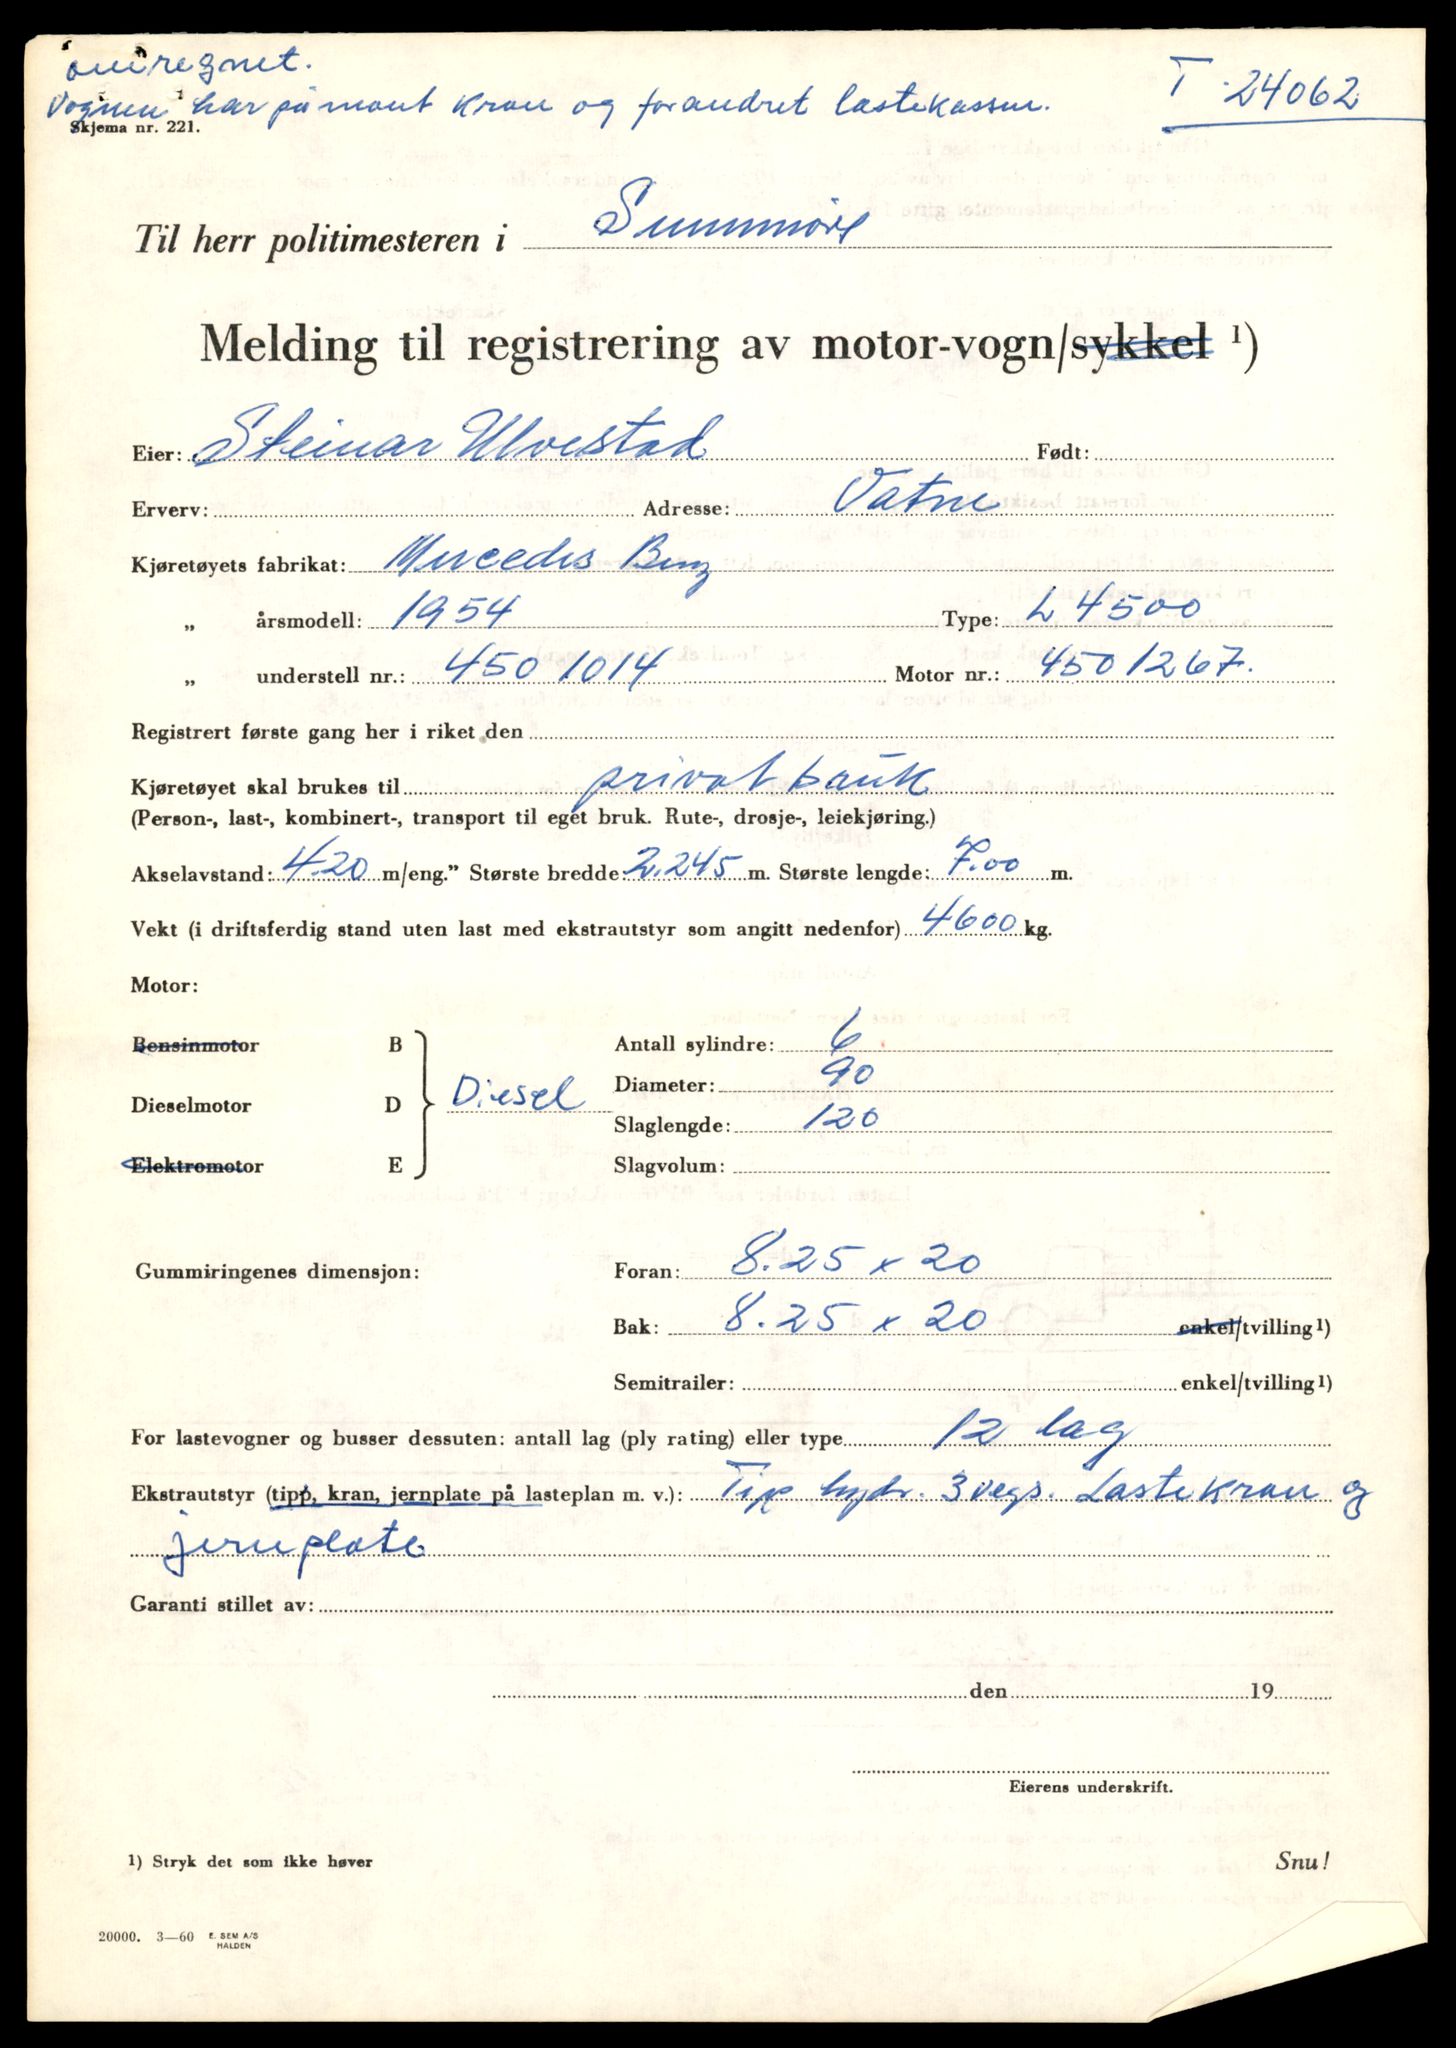 omregnet.
Vognen har påmont kran og forandret lastekassen.
T-24062
Skjema nr. 221.
Til herr politimesteren i Sunnmøre
Melding til registrering av motor-vogn/sykkel ¹)
Eier: Steinar Ulvestad Født:
Erverv: Adresse: Vatne
Kjøretøyets fabrikat: Mercedes Benz
„ årsmodell: 1954 Type: L 4500
„ understell nr.: 450 1014 Motor nr.: 450 1267.
Registrert første gang her i riket den
Kjøretøyet skal brukes til privat bruk
(Person-, last-, kombinert-, transport til eget bruk. Rute-, drosje-, leiekjøring.)
Akselavstand: 4.20 m/eng.” Største bredde: 2.245 m. Største lengde: 7.00 m.
Vekt (i driftsferdig stand uten last med ekstrautstyr som angitt nedenfor) 4600 kg.
Motor:
Bensinmotor B Antall sylindre: 6
Diameter: 90
Dieselmotor D Diesel
Slaglengde: 120
Elektromotor E Slagvolum:
Gummiringenes dimensjon: Foran: 8.25 x 20
Bak: 8.25 x 20 enkel/tvilling¹)
Semitrailer: enkel/tvilling¹)
For lastevogner og busser dessuten: antall lag (ply rating) eller type 12 lag
Ekstrautstyr (tipp, kran, jernplate på lasteplan m. v.): Tip hydr. 3 vegs. Lastekran og
jernplate
Garanti stillet av:
den 19
Eierens underskrift.
¹) Stryk det som ikke høver
Snu!
20000. 3—60 E. SEM A/S
HALDEN